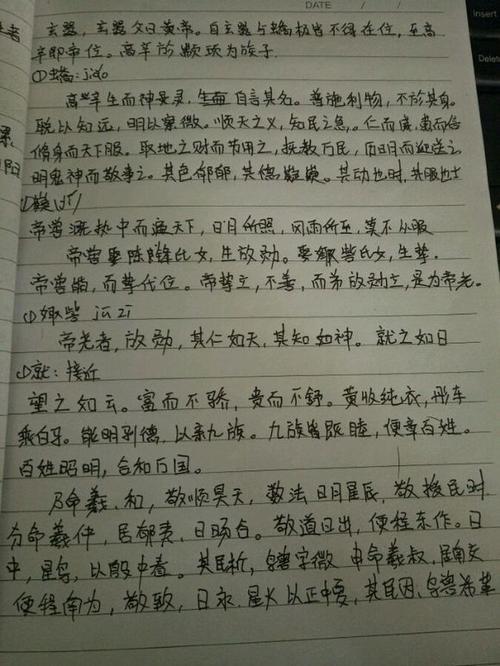 DATE / /
Delete
玄嚣，玄嚣父曰黄帝。自玄嚣与蟜极皆不得在位，至高
辛即帝位。高辛於颛顼为族子。
①蟜：jiǎo
高辛生而神灵，自言其名。普施利物，不於其身。
聪以知远，明以察微。顺天之义，知民之急。仁而威，惠而信
脩身而天下服。取地之财而节用之，抚教万民，历日月而迎送之
明鬼神而敬事之。其色郁郁，其德嶷嶷。其动也时，其服也士
①嶷
帝喾溉执中而遍天下，日月所照，风雨所至，莫不从服
帝喾娶陈锋氏女，生放勋。娶娵訾氏女，生挚。
帝喾崩，而挚代位。帝挚立，不善，而弟放勋立，是为帝尧。
①娵訾 jū zī
帝尧者，放勋，其仁如天，其知如神。就之如日
①就：接近
望之如云。富而不骄，贵而不舒。黄收纯衣，彤车
乘白马。能明驯德，以亲九族。九族既睦，便章百姓。
百姓昭明，合和万国。
乃命羲、和，敬顺昊天，数法日月星辰，敬授民时
分命羲仲，居郁夷，曰旸谷。敬道日出，便程东作。日
中，星鸟，以殷中春。其民析，鸟兽字微 申命羲叔，居南交
便程南为，敬致，日永，星火以正中夏，其民因，鸟兽希革